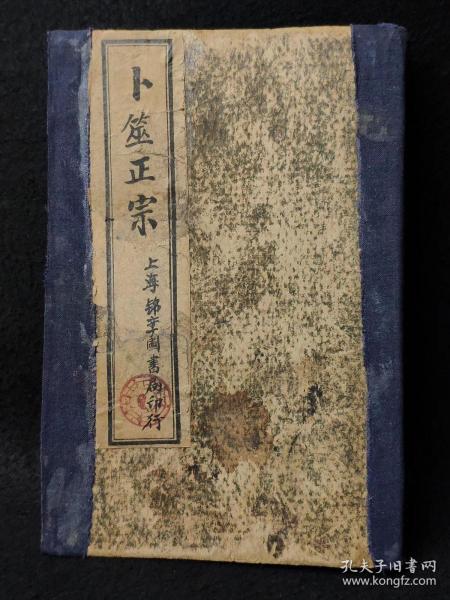 卜筮正宗
上海錦章圖書局印行
孔夫子旧书网
www.kongfz.com